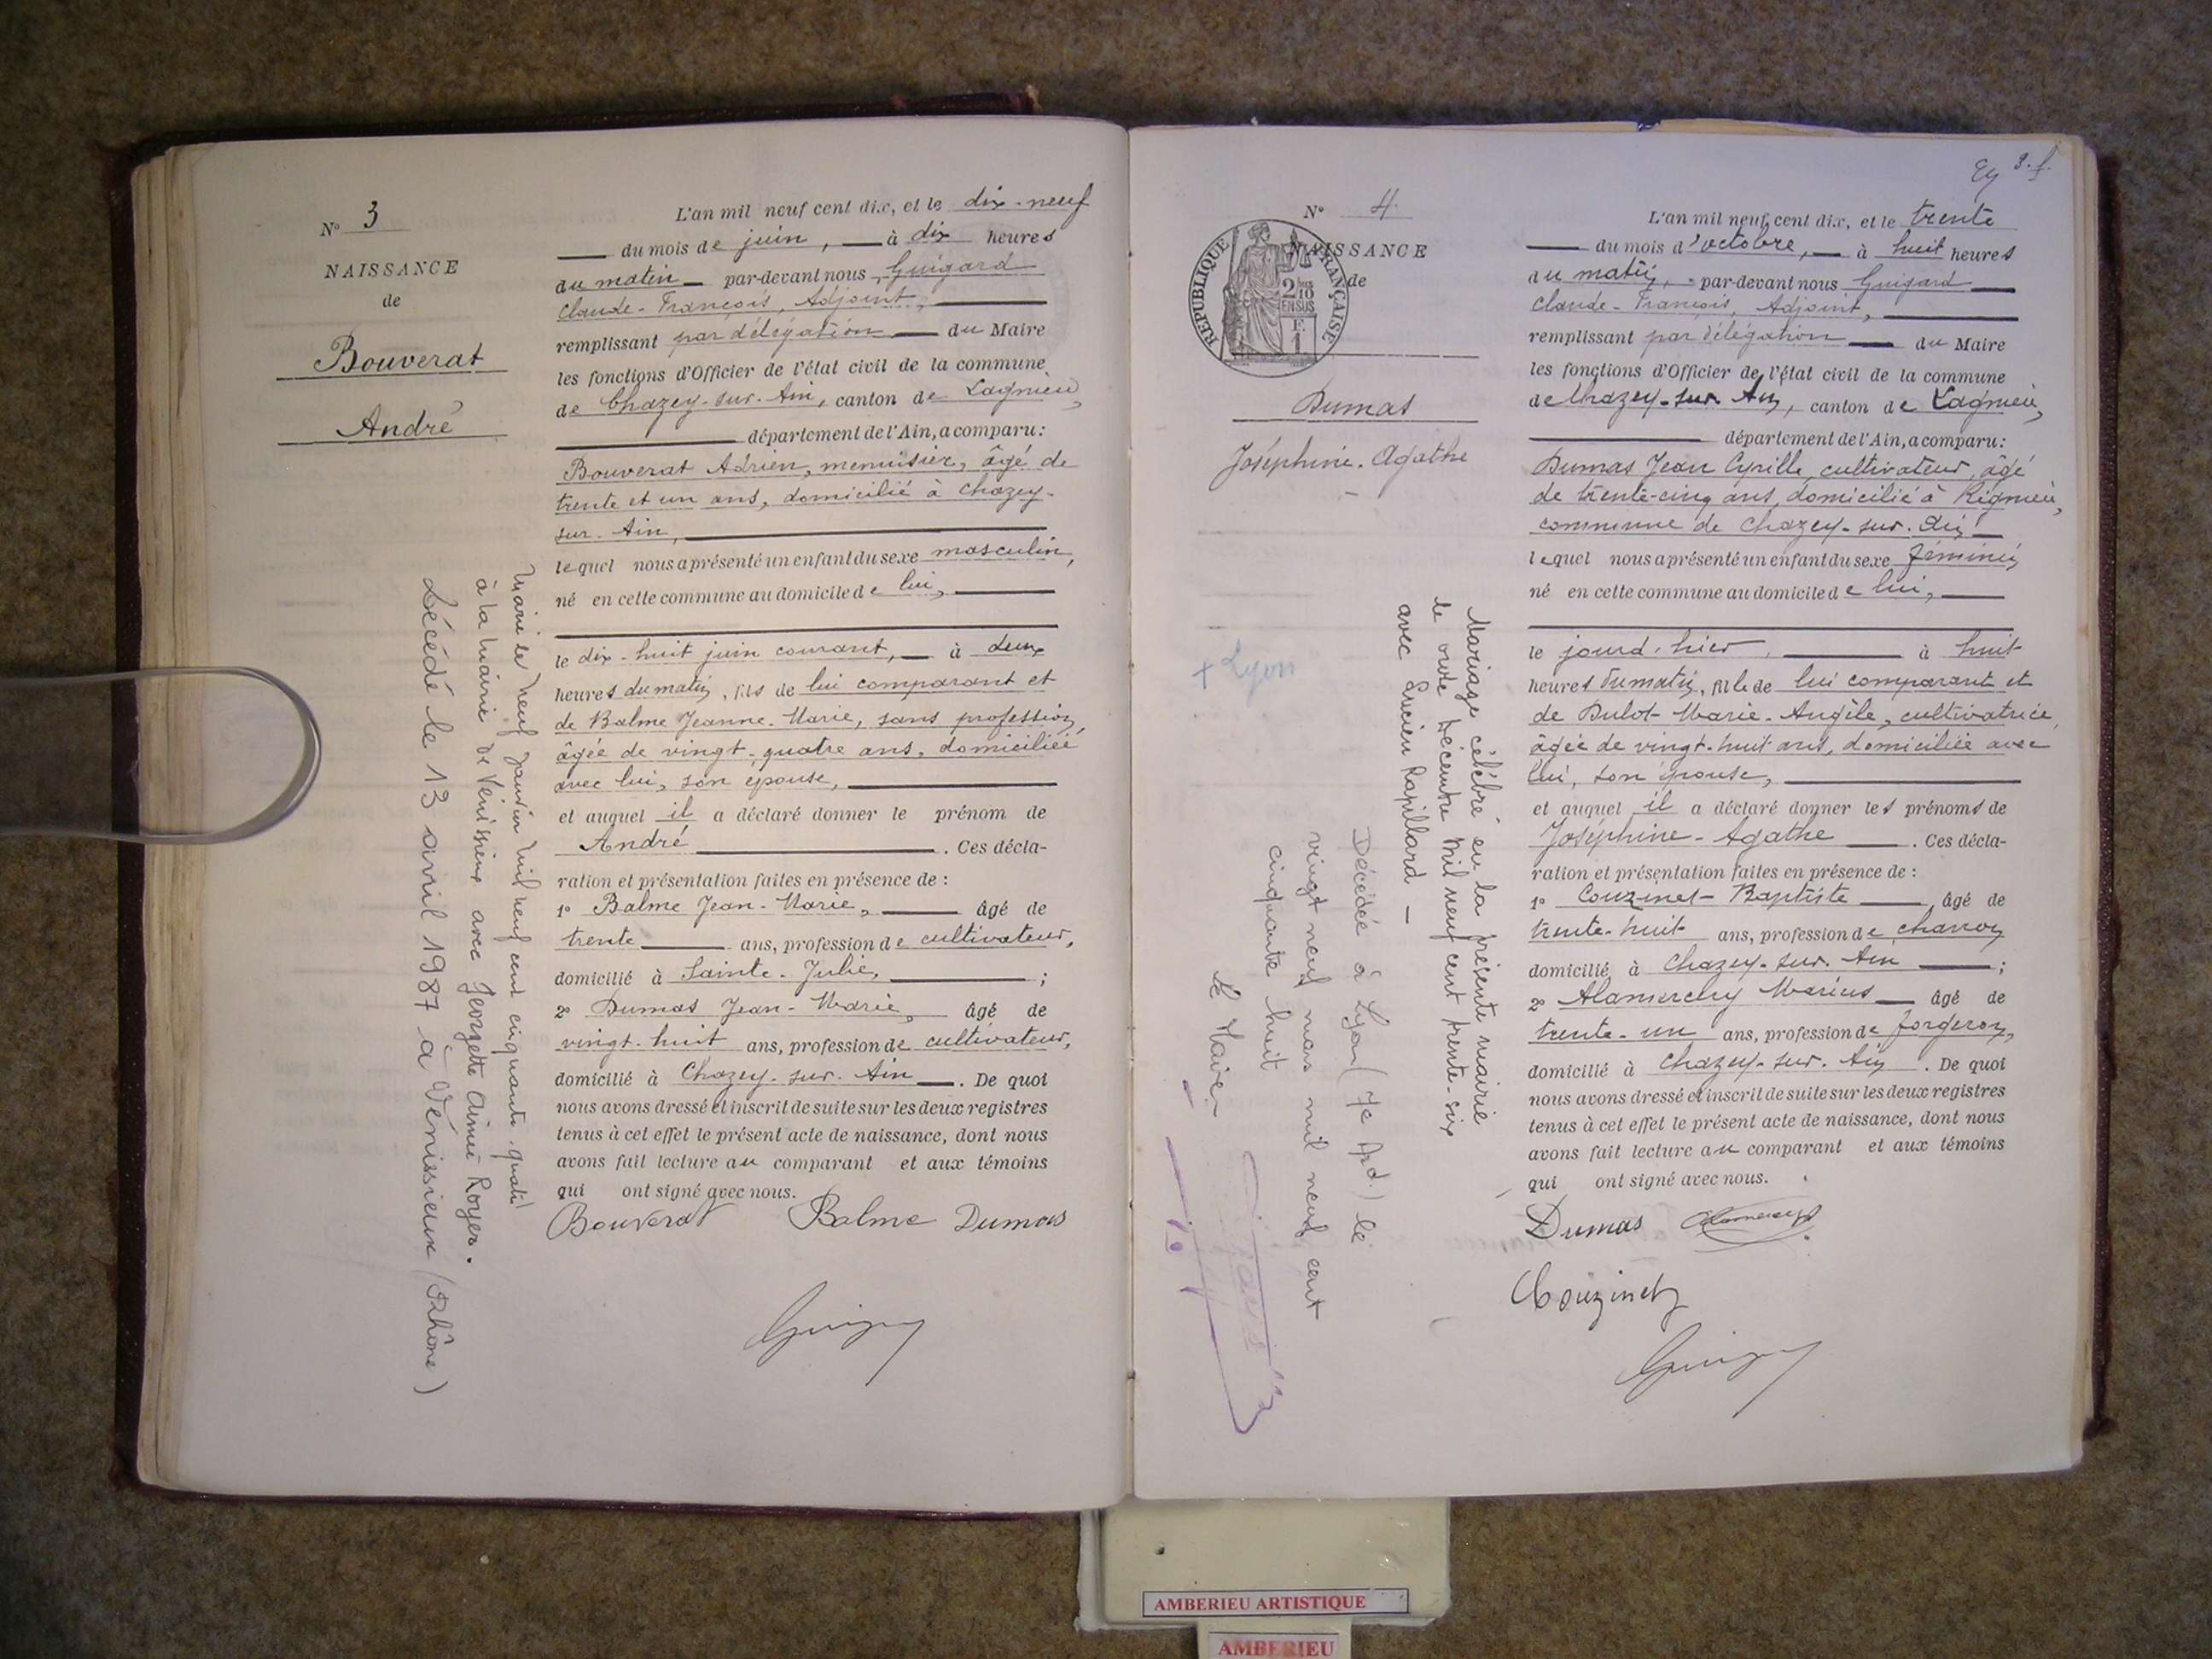 N° 3
NAISSANCE
de
Bouverat
André
L'an mil neuf cent dix, et le dix-neuf
du mois de juin, à dix heures
du matin par-devant nous Guigard
Claude-François, Adjoint,
remplissant par délégation du Maire
les fonctions d'Officier de l'état civil de la commune
de Chazey-sur-Ain, canton de Lagnieu,
département de l'Ain, a comparu :
Bouverat Adrien, menuisier, âgé de
trente et un ans, domicilié à Chazey-
sur-Ain,
lequel nous a présenté un enfant du sexe masculin,
né en cette commune au domicile de lui,
le dix-huit juin courant, à deux
heures du matin, fils de lui comparant et
de Balme Jeanne-Marie, sans profession,
âgée de vingt-quatre ans, domiciliée
avec lui, son épouse,
et auquel il a déclaré donner le prénom de
André. Ces décla-
ration et présentation faites en présence de :
1° Balme Jean-Marie, âgé de
trente ans, profession de cultivateur,
domicilié à Sainte-Julie, ;
2° Dumas Jean-Marie, âgé de
vingt-huit ans, profession de cultivateur,
domicilié à Chazey-sur-Ain. De quoi
nous avons dressé et inscrit de suite sur les deux registres
tenus à cet effet le présent acte de naissance, dont nous
avons fait lecture au comparant et aux témoins
qui ont signé avec nous.
Bouverat Balme Dumas
Marié le neuf janvier mil neuf cent cinquante-quatre
à la mairie de Vénissieux avec Georgette Aimée Royer.
Décédé le 13 avril 1987 à Vénissieux (Rhône)
3. f.
N° 4
NAISSANCE
de
REPUBLIQUE FRANÇAISE
2/10
EN SUS
F.
1
Dumas
Joséphine-Agathe
+ Lyon
L'an mil neuf cent dix, et le trente
du mois d'octobre, à huit heures
du matin, par-devant nous Guigard
Claude-François, Adjoint,
remplissant par délégation du Maire
les fonctions d'Officier de l'état civil de la commune
de Chazey-sur-Ain, canton de Lagnieu,
département de l'Ain, a comparu :
Dumas Jean Cyrille, cultivateur, âgé
de trente-cinq ans, domicilié à Rignieu,
commune de Chazey-sur-Ain
lequel nous a présenté un enfant du sexe féminin,
né en cette commune au domicile de lui,
le jourd'hier, à huit
heures du matin, fille de lui comparant et
de Dulot Marie-Angèle, cultivatrice,
âgée de vingt-huit ans, domiciliée avec
lui, son épouse,
et auquel il a déclaré donner les prénoms de
Joséphine-Agathe. Ces décla-
ration et présentation faites en présence de :
1° Couzinet Baptiste âgé de
trente-huit ans, profession de charron
domicilié à Chazey-sur-Ain ;
2° Alamercery Marius âgé de
trente-un ans, profession de forgeron,
domicilié à Chazey-sur-Ain. De quoi
nous avons dressé et inscrit de suite sur les deux registres
tenus à cet effet le présent acte de naissance, dont nous
avons fait lecture au comparant et aux témoins
qui ont signé avec nous.
Dumas Alamercery
Couzinet
Mariage célébré en la présente mairie
le onze Décembre mil neuf cent trente-six
avec Lucien Rapillard —
Décédée à Lyon (7e Ard.) le
vingt neuf mars mil neuf cent
cinquante huit
Le Maire
AMBERIEU ARTISTIQUE
AMBERIEU